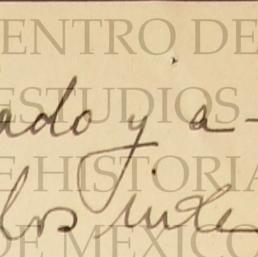 ENTRO DE
ado y a-
ESTUDIOS
E HISTORIA
los
DE MÉXICO